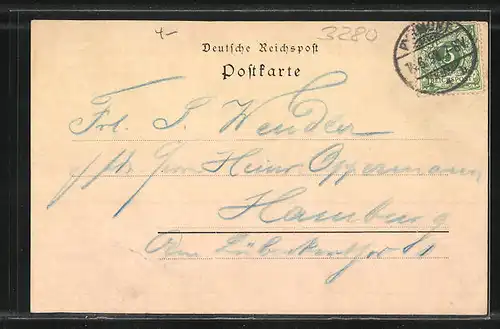 4-
3280
Deutsche Reichspost
Postkarte
PYRMONT
5
Frl. S. Wendler
Herrn Heinr. Oppermann
Hamburg
Am Lübeckerthor 11